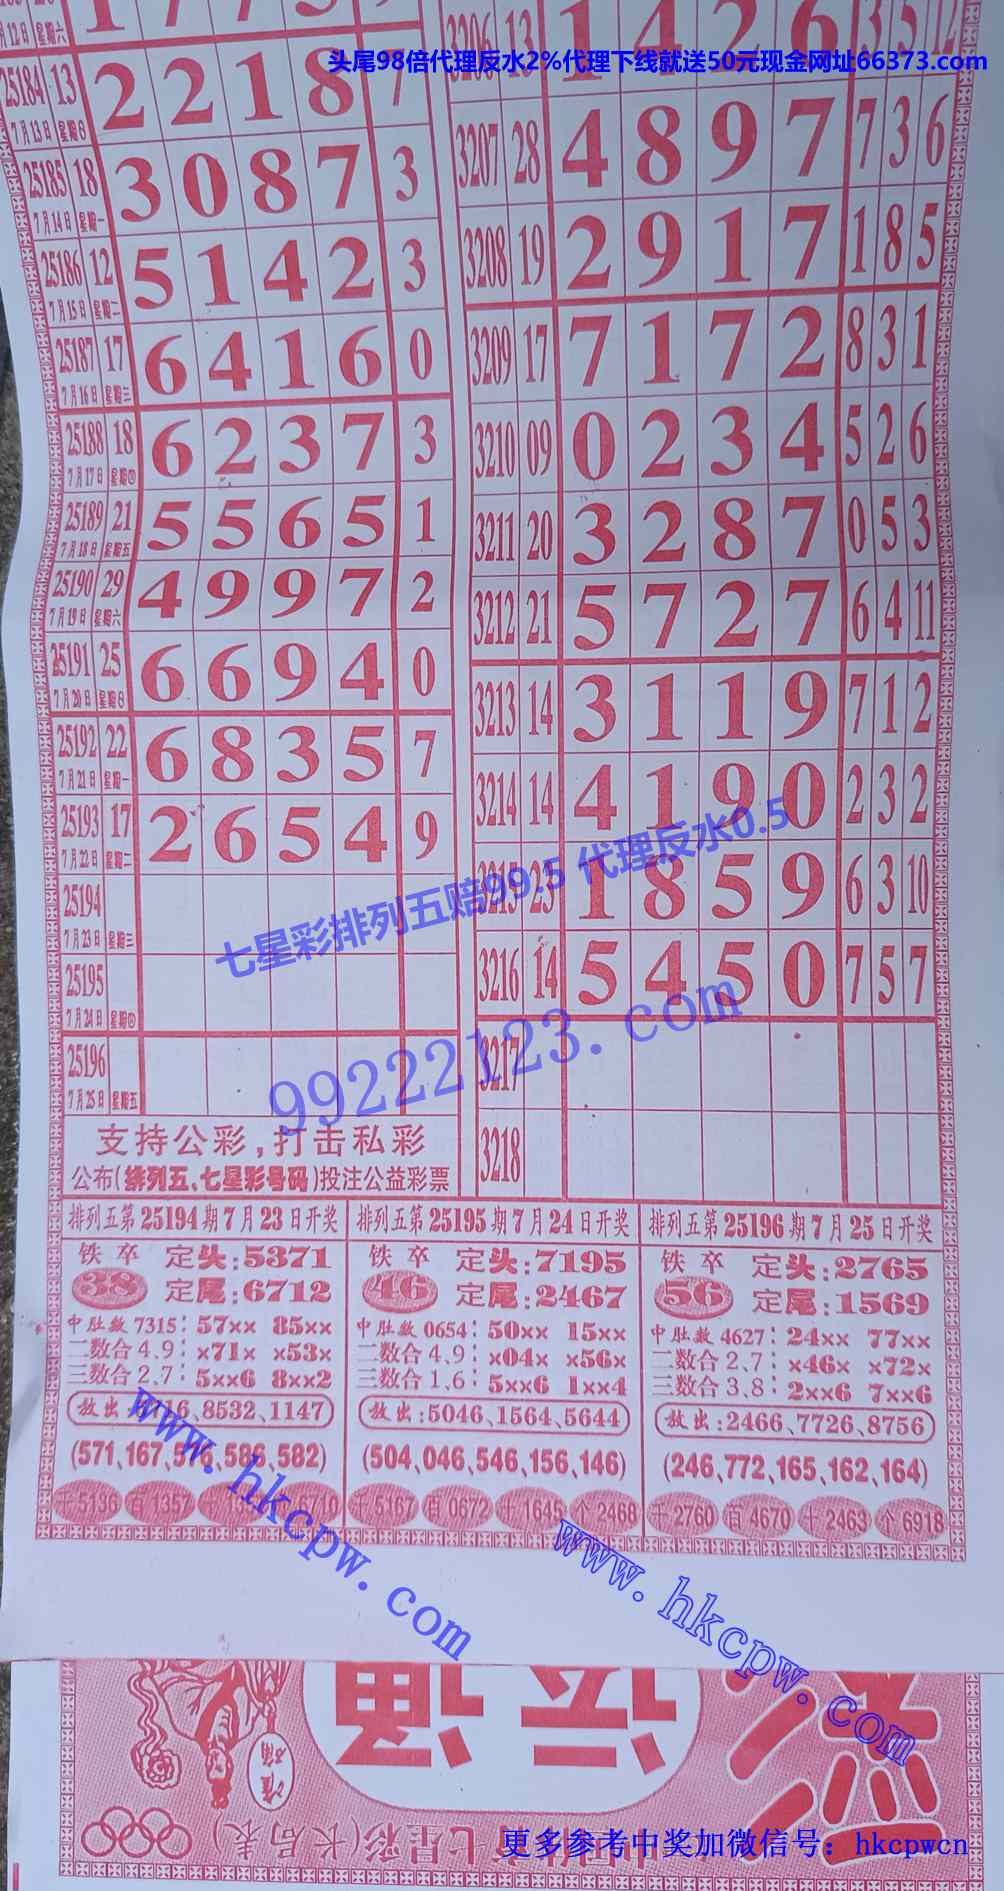 头尾98倍代理反水2%代理下线就送50元现金网址66373.com
月12日 星期六
25184 13 2 2 1 8 7
7月13日 星期日
25185 18 3 0 8 7 3
7月14日 星期一
25186 12 5 1 4 2 3
7月15日 星期二
25187 17 6 4 1 6 0
7月16日 星期三
25188 18 6 2 3 7 3
7月17日 星期四
25189 21 5 5 6 5 1
7月18日 星期五
25190 29 4 9 9 7 2
7月19日 星期六
25191 25 6 6 9 4 0
7月20日 星期日
25192 22 6 8 3 5 7
7月21日 星期一
25193 17 2 6 5 4 9
7月22日 星期二
25194
7月23日 星期三
25195
7月24日 星期四
25196
7月25日 星期五
支持公彩,打击私彩
公布(排列五、七星彩号码)投注公益彩票
3206 13 1 4 2 6 3 5 12
3207 28 4 8 9 7 7 3 6
3208 19 2 9 1 7 1 8 5
3209 17 7 1 7 2 8 3 1
3210 09 0 2 3 4 5 2 6
3211 20 3 2 8 7 0 5 3
3212 21 5 7 2 7 6 4 11
3213 14 3 1 1 9 7 1 2
3214 14 4 1 9 0 2 3 2
3215 23 1 8 5 9 6 3 10
3216 14 5 4 5 0 7 5 7
3217
3218
七星彩排列五赔99.5 代理反水0.5
99222123.com
排列五第25194期7月23日开奖
铁卒 定头:5371
38 定尾:6712
中肚数7315: 57×× 85××
二数合4.9: ×71× ×53×
三数合2.7: 5××6 8××2
放出:5716、8532、1147
(571,167,516,586,582)
千5136 百1357
排列五第25195期7月24日开奖
铁卒 定头:7195
46 定尾:2467
中肚数0654: 50×× 15××
二数合4.9: ×04× ×56×
三数合1.6: 5××6 1××4
放出:5046、1564、5644
(504,046,546,156,146)
千5167 百0672 十1645 个2468
排列五第25196期7月25日开奖
铁卒 定头:2765
56 定尾:1569
中肚数4627: 24×× 77××
二数合2.7: ×46× ×72×
三数合3.8: 2××6 7××6
放出:2466、7726、8756
(246,772,165,162,164)
千2760 百4670 十2463 个6918
www.hkcpw.com
www.hkcpw.com
运通
准确
七星彩(长治表)
更多参考中奖加微信号：hkcpwcn